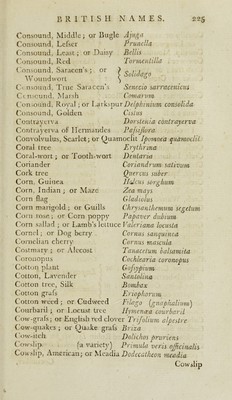 BRITISH NAMES. 225
Consound, Middle; or Bugle Ajuga
Consound, Lesser Prunella
Consound, Least; or Daisy Bellis
Consound, Red Tormentilla
Consound, Saracen's; or } Solidago
Woundwort
Consound, True Saracen's Senecio sarracenicus
Consound, Marsh Comarum
Consound, Royal; or Larkspur Delphinium consolida
Consound, Golden Cistus
Contrayerva Dorstenia contrayerva
Contrayerva of Hernandes Passiflora
Convolvulus, Scarlet; or Quamoclit Ipomoea quamoclit
Coral tree Erythrina
Coral-wort; or Tooth-wort Dentaria
Coriander Coriandrum sativum
Cork tree Quercus suber
Corn, Guinea Holcus sorghum
Corn, Indian; or Maze Zea mays
Corn flag Gladiolus
Corn marigold; or Guills Chrysanthemum segetum
Corn rose; or Corn poppy Papaver dubium
Corn sallad; or Lamb's lettuce Valeriana locusta
Cornel; or Dog berry Cornus sanguinea
Cornelian cherry Cornus mascula
Costmary; or Alecost Tanacetum balsamita
Coronopus Cochlearia coronopus
Cotton plant Gossypium
Cotton, Lavender Santolina
Cotton tree, Silk Bombax
Cotton grass Eriophorum
Cotton weed; or Cudweed Filago (gnaphalium)
Courbaril; or Locust tree Hymenæa courbaril
Cow-grass; or English red clover Trifolium alpestre
Cow-quakes; or Quake grass Briza
Cow-itch Dolichos pruriens
Cowslip (a variety) Primula veris officinalis
Cowslip, American; or Meadia Dodecatheon meadia
Cowslip